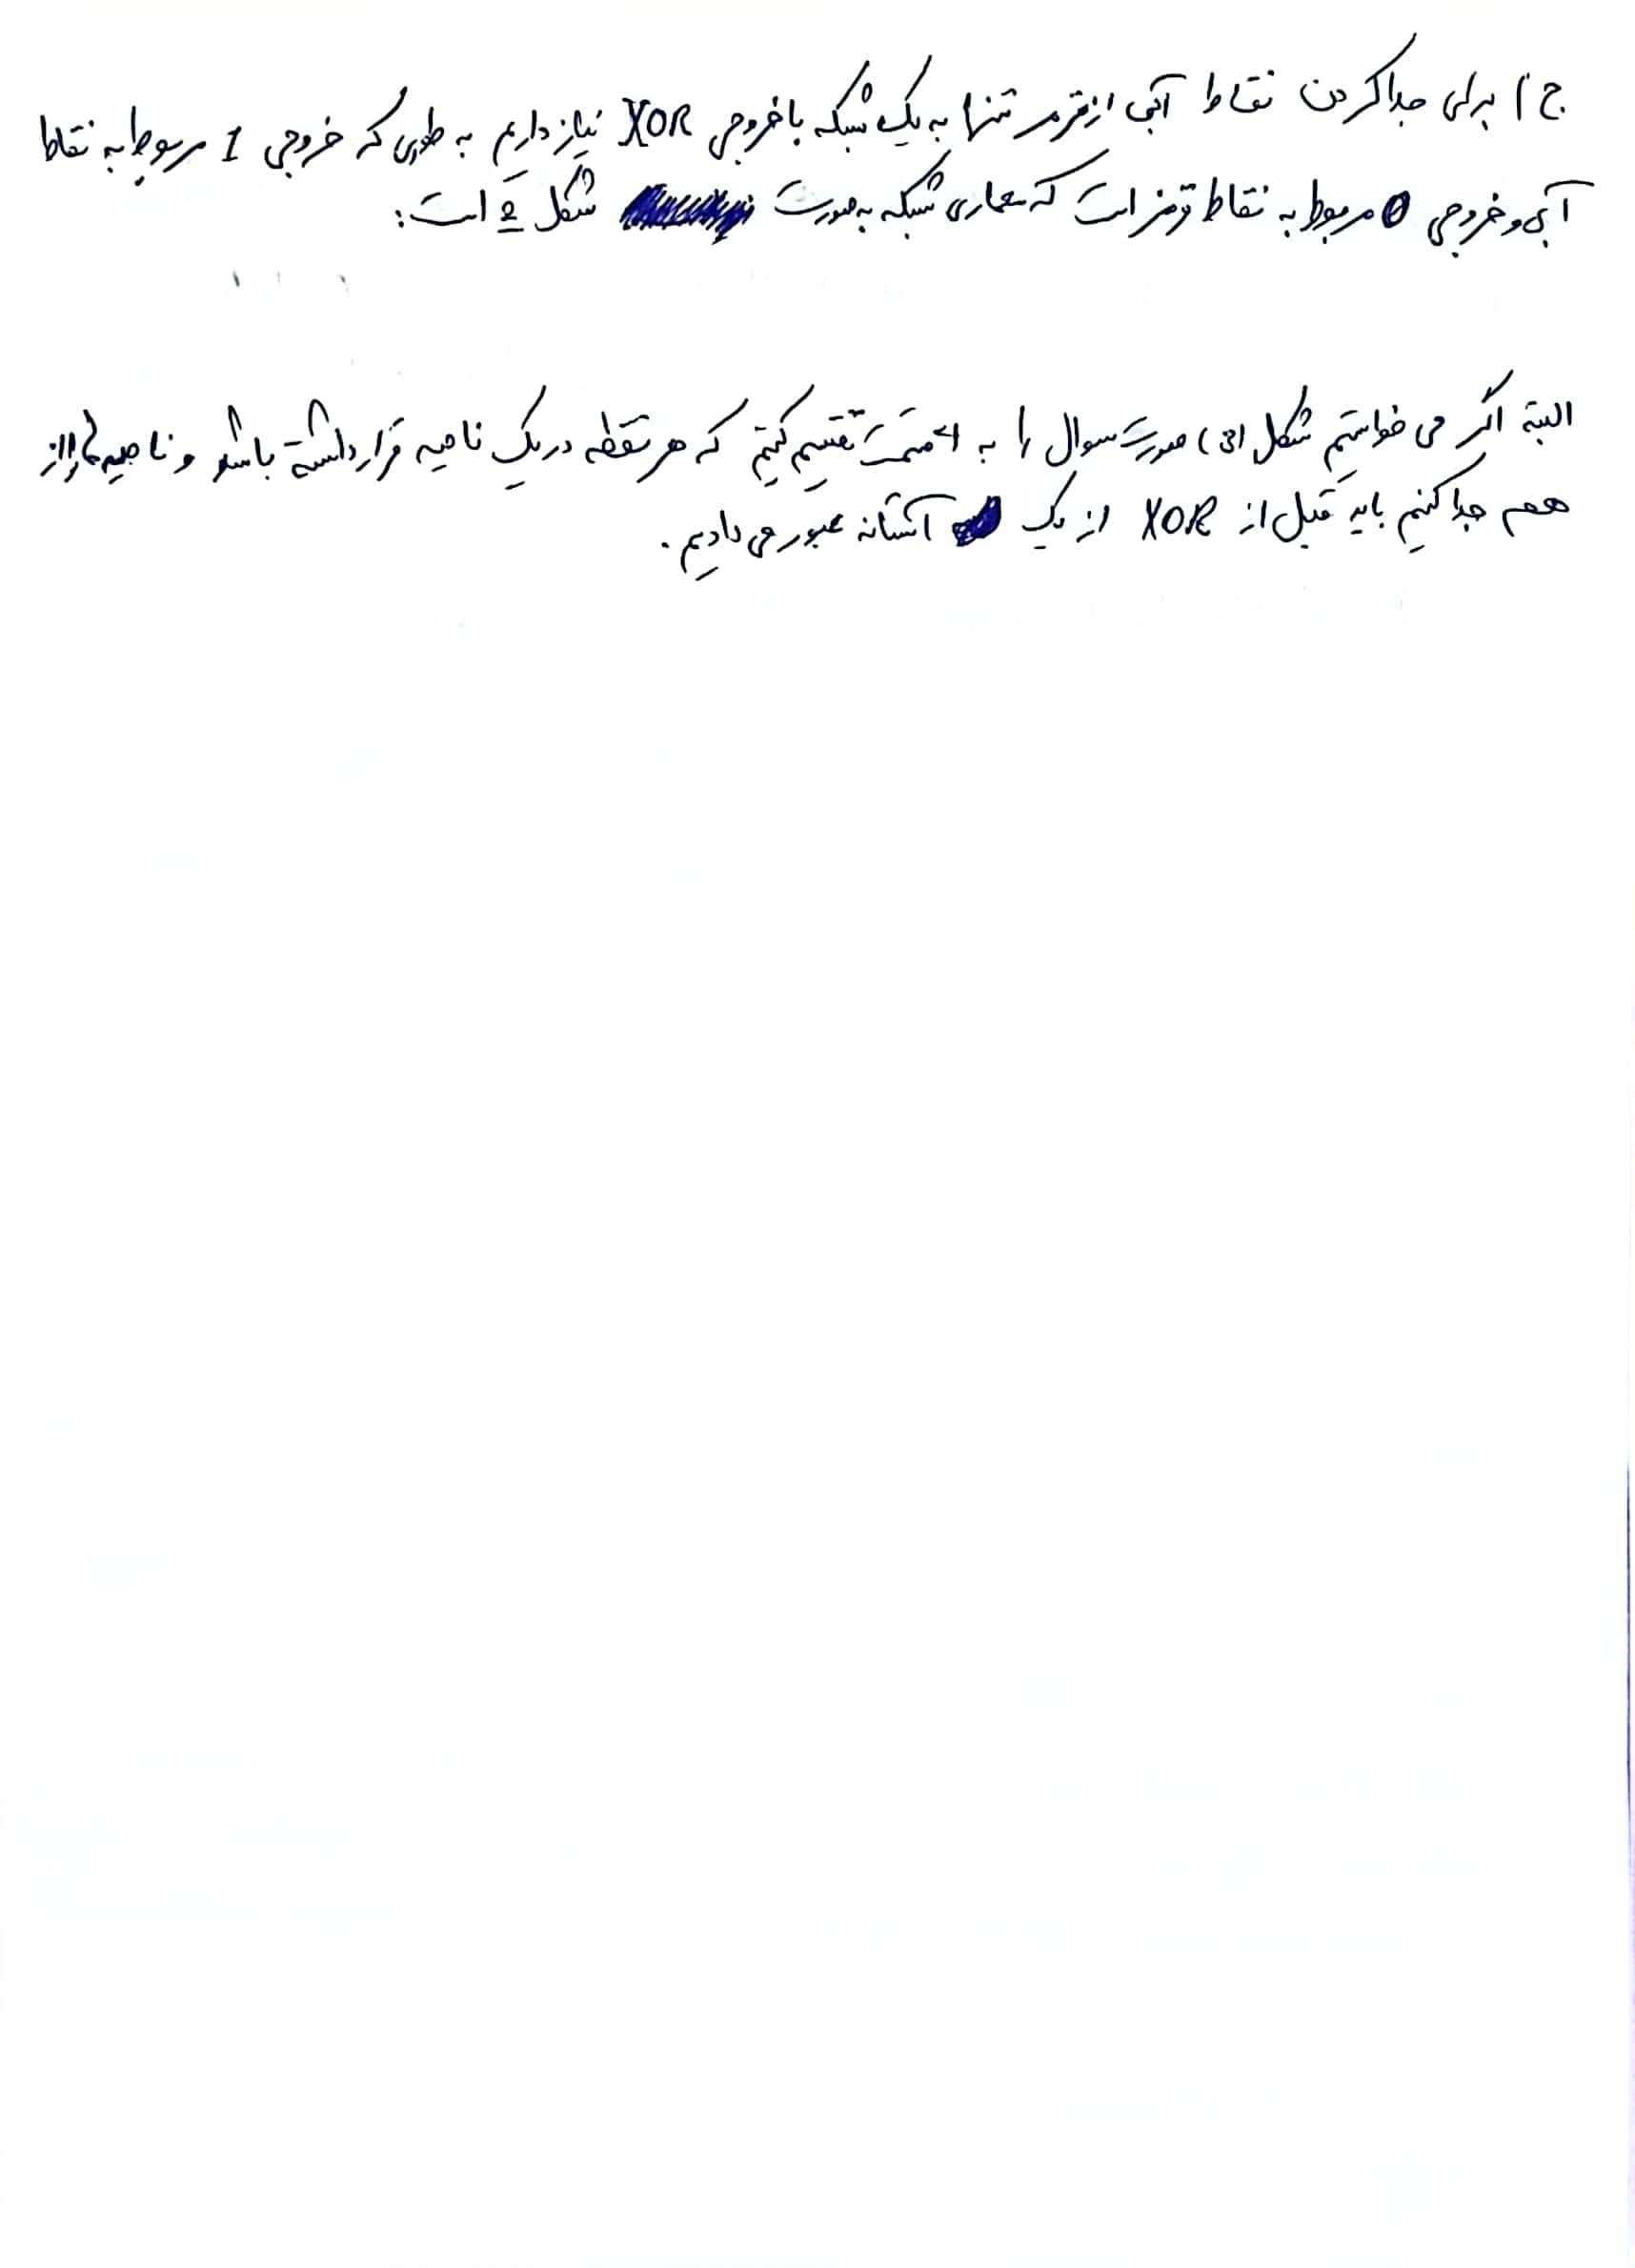 ج) برای جدا کردن نقاط آبی از قرمز تنها به یک شبکه با خروجی XOR نیاز داریم به طوری که خروجی 1 مربوط به نقاط
آبی و خروجی 0 مربوط به نقاط قرمز است که معماری شبکه به صورت شکل 2 است:
البته اگر می خواستیم شکل صورت سوال را به 4 قسمت تقسیم کنیم که هر نقطه در یک ناحیه قرار داشته باشد و ناحیه ها را از
هم جدا کنیم باید قبل از XOR از یک آستانه عبور می دادیم.